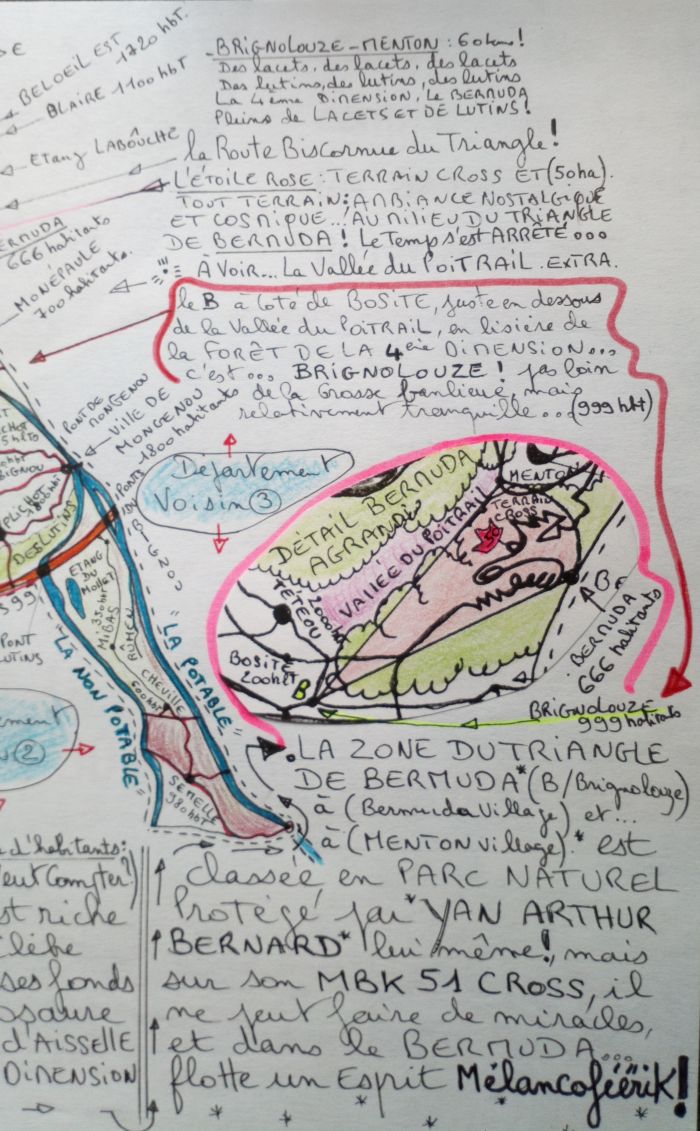 DE
BELOEIL EST
1720 hbt.
BLAIRE 1100 hbt
ETANG LABÔUCHE
BERMUDA
666 habitants
MONÉPAULE
700 habitants.
- BRIGNOLOUZE - MENTON : 60 kms!
Des lacets, des lacets, des lacets
Des lutins, des lutins, des lutins
La 4ème DIMENSION, le BERMUDA
Pleins de LACETS ET DE LUTINS!
la Route Biscornue du Triangle!
L'ÉTOILE ROSE: TERRAIN CROSS ET (50ha).
TOUT TERRAIN: AMBIANCE NOSTALGIQUE
ET COSMIQUE...! AU MILIEU DU TRIANGLE
DE BERMUDA! Le Temps s'est ARRÊTÉ...
À VOIR... La Vallée du POITRAIL. EXTRA.
le B à côté de BOSITE, juste en dessous
de la Vallée du POITRAIL, en lisière de
la FORÊT DE LA 4ème DIMENSION...
c'est... BRIGNOLOUZE! pas loin
de la Grosse banlieue, mais
relativement tranquille... (999 hbt)
PONT DE
MONGENOU
VILLE DE
MONGENOU
1800 habitants
Département
Voisin ③
DES LUTINS
S99
PONT
LUTINS
ETANG
DU
MOLLET
MIBAS
350 hbt
RÔMEN
CHEVILLE
600 hbt
SEMELLE
980 hbt
"LA POTABLE"
"LA NON POTABLE"
②
DÉTAIL BERMUDA
AGRANDI
VALLÉE DU POITRAIL
MENTON
TERRAIN
CROSS
50
TÉTEOU
2000 hbt
BOSITE
200 hbt
B
BERMUDA
666 habitants
BRIGNOLOUZE
999 habitants
. LA ZONE DU TRIANGLE
DE BERMUDA* (B/Brignolouze)
à (Bermuda Village) et...
à (MENTON Village).* est
classée en PARC NATUREL
Protégé par *YAN ARTHUR
BERNARD* lui même!, mais
sur son MBK 51 CROSS, il
ne peut faire de miracles,
et dans le BERMUDA...
flotte un Esprit MélancoféériK!
d'habitants:
peut Compter?)
est riche
célèbre
ses fonds
osaure
d'AISSELLE
DIMENSION